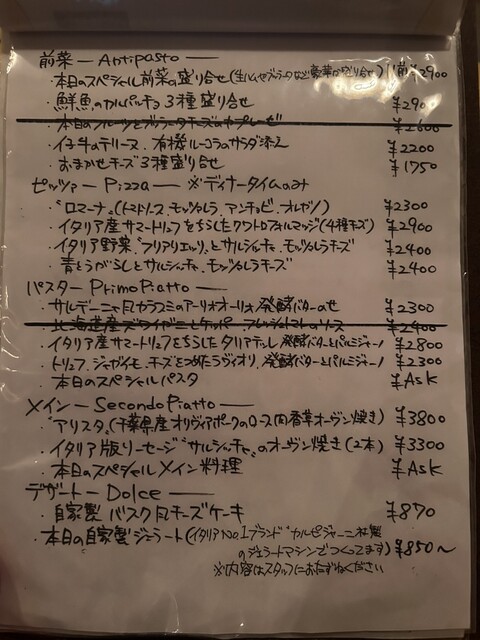 前菜 — Antipasto —
・本日のスペシャル前菜の盛り合せ(生ハムやブラータなど豪華な盛り合せ) 1人前¥2900
・鮮魚のカルパッチョ3種盛り合せ ¥2900
・本日のフルーツとブッラータチーズのカプレーゼ ¥2600
・イチ牛のテリーヌ、有機ルーコラのサラダ添え ¥2200
・おまかせチーズ3種盛り合せ ¥1750
ピッツァー — Pizza — ※ディナータイムのみ
・"ロマーナ"(トマトソース、モッツァレラ、アンチョビ、オレガノ) ¥2300
・イタリア産サマートリュフをちらしたクワトロフォルマッジ(4種チーズ) ¥2900
・イタリア野菜"フリアリエッリ"とサルシッチャ、モッツァレラチーズ ¥2400
・青とうがらしとサルシッチャ、モッツァレラチーズ ¥2400
パスター — Primo Piatto —
・サルデーニャ風カラスミのアーリオオーリオ、発酵バターのせ ¥2300
・北海道産ズワイガニとケッパー、フレッシュトマトのソース ¥2400
・イタリア産サマートリュフをちらしたタリアテッレ、発酵バターとパルミジャーノ ¥2800
・トリュフ、ジャガイモ、チーズをつめたラヴィオリ、発酵バターとパルミジャーノ ¥2300
・本日のスペシャルパスタ ¥Ask
メイン — Secondo Piatto —
・"アリスタ"(千葉県産オリヴィアポークのロース肉香草オーヴン焼き) ¥3800
・イタリア版ソーセージ"サルシッチャ"のオーヴン焼き(2本) ¥3300
・本日のスペシャルメイン料理 ¥Ask
デザート — Dolce —
・自家製バスク風チーズケーキ ¥870
・本日の自家製ジェラート(イタリアNo.1ブランド"カルピジャーニ社製
のジェラートマシンでつくってます) ¥850〜
※内容はスタッフにおたずねください